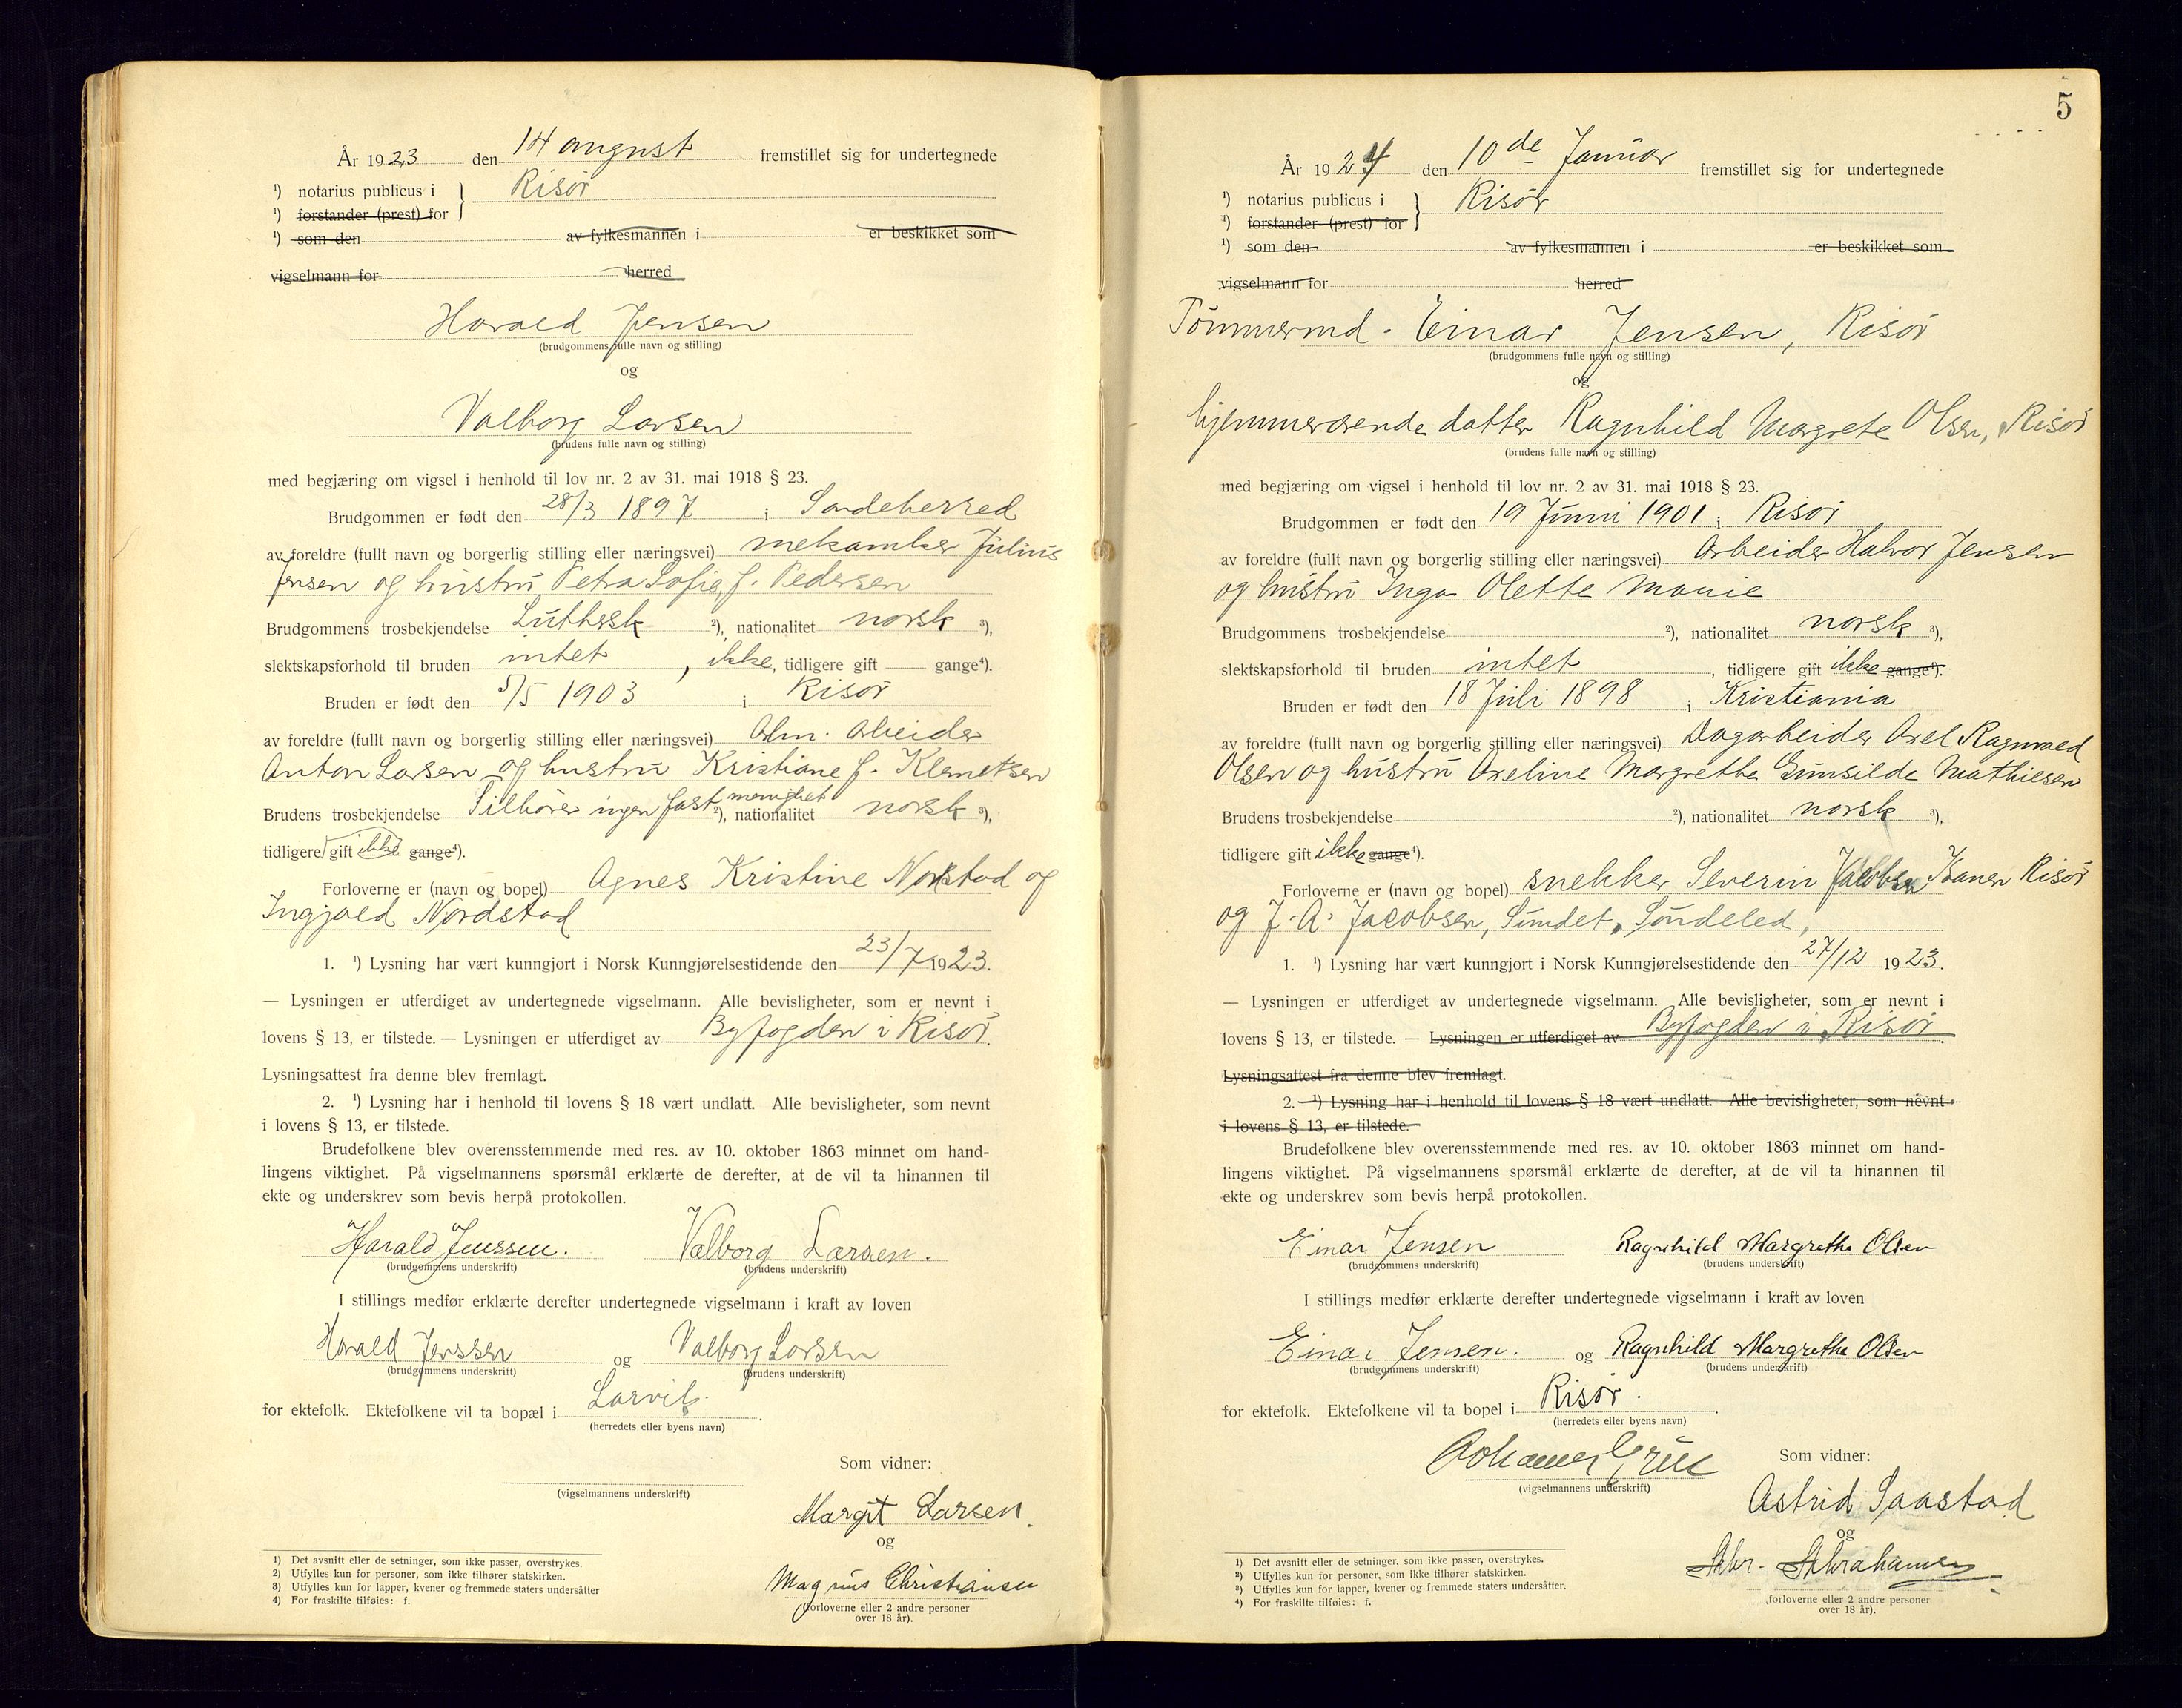 År 1923 den 14 august fremstillet sig for undertegnede
¹) notarius publicus i } Risør
¹) forstander (prest) for
¹) som den av fylkesmannen i er beskikket som
vigselmann for herred
Harald Jensen
(brudgommens fulle navn og stilling)
og
Valborg Larsen
(brudens fulle navn og stilling)
med begjæring om vigsel i henhold til lov nr. 2 av 31. mai 1918 § 23.
Brudgommen er født den 28/3 1897 i Sandeherred
av foreldre (fullt navn og borgerlig stilling eller næringsvei) mekaniker Julius
Jensen og hustru Petra Sofie, f. Pedersen
Brudgommens trosbekjendelse Luthersk ²), nationalitet norsk ³),
slektskapsforhold til bruden intet , ikke, tidligere gift gange⁴).
Bruden er født den 5/5 1903 i Risør
av foreldre (fullt navn og borgerlig stilling eller næringsvei) Alm. Arbeider
Anton Larsen og hustru Kristiane f. Klemetsen
Brudens trosbekjendelse Tilhører ingen fast menighet ²), nationalitet norsk ³),
tidligere gift ikke gange⁴).
Forloverne er (navn og bopel) Agnes Kristine Nordstad og
Ingjald Nordstad
1. ¹) Lysning har vært kunngjort i Norsk Kunngjørelsestidende den 23/7 1923.
— Lysningen er utferdiget av undertegnede vigselmann. Alle bevisligheter, som er nevnt i
lovens § 13, er tilstede. — Lysningen er utferdiget av Byfogden i Risør.
Lysningsattest fra denne blev fremlagt.
2. ¹) Lysning har i henhold til lovens § 18 vært undlatt. Alle bevisligheter, som nevnt
i lovens § 13, er tilstede.
Brudefolkene blev overensstemmende med res. av 10. oktober 1863 minnet om hand-
lingens viktighet. På vigselmannens spørsmål erklærte de derefter, at de vil ta hinannen til
ekte og underskrev som bevis herpå protokollen.
Harald Jenssen. Valborg Larsen.
(brudgommens underskrift) (brudens underskrift)
I stillings medfør erklærte derefter undertegnede vigselmann i kraft av loven
Harald Jenssen og Valborg Larsen
(brudgommens underskrift) (brudens underskrift)
for ektefolk. Ektefolkene vil ta bopæl i Larvik.
(herredets eller byens navn)
Som vidner:
(vigselmannens underskrift)
Margit Larsen.
og
Magnus Christiansen
(forloverne eller 2 andre personer
over 18 år).
1) Det avsnitt eller de setninger, som ikke passer, overstrykes.
2) Utfylles kun for personer, som ikke tilhører statskirken.
3) Utfylles kun for lapper, kvener og fremmede staters undersåtter
4) For fraskilte tilføies: f.
5
År 1924 den 10de Januar fremstillet sig for undertegnede
¹) notarius publicus i } Risør
¹) forstander (prest) for
¹) som den av fylkesmannen i er beskikket som
vigselmann for herred
Tømmermd. Einar Jensen, Risør
(brudgommens fulle navn og stilling)
og
hjemmeværende datter Ragnhild Margrete Olsen, Risør
(brudens fulle navn og stilling)
med begjæring om vigsel i henhold til lov nr. 2 av 31. mai 1918 § 23.
Brudgommen er født den 19 Juni 1901 i Risør
av foreldre (fullt navn og borgerlig stilling eller næringsvei) Arbeider Halvor Jensen
og hustru Inga Olette Marie
Brudgommens trosbekjendelse ²), nationalitet norsk ³),
slektskapsforhold til bruden intet , tidligere gift ikke gange⁴).
Bruden er født den 18 Juli 1898 i Kristiania
av foreldre (fullt navn og borgerlig stilling eller næringsvei) Dagarbeider Axel Ragnvald
Olsen og hustru Areline Margrethe Gunsilde Mathiesen
Brudens trosbekjendelse ²), nationalitet norsk ³),
tidligere gift ikke gange⁴).
Forloverne er (navn og bopel) snekker Severin Jacobsen Risør
og J. A. Jacobsen, Sundet, Søndeled,
1. ¹) Lysning har vært kunngjort i Norsk Kunngjørelsestidende den 27/12 1923.
— Lysningen er utferdiget av undertegnede vigselmann. Alle bevisligheter, som er nevnt i
lovens § 13, er tilstede. — Lysningen er utferdiget av Byfogden i Risør.
Lysningsattest fra denne blev fremlagt.
2. ¹) Lysning har i henhold til lovens § 18 vært undlatt. Alle bevisligheter, som nevnt
i lovens § 13, er tilstede.
Brudefolkene blev overensstemmende med res. av 10. oktober 1863 minnet om hand-
lingens viktighet. På vigselmannens spørsmål erklærte de derefter, at de vil ta hinannen til
ekte og underskrev som bevis herpå protokollen.
Einar Jensen Ragnhild Margrethe Olsen
(brudgommens underskrift) (brudens underskrift)
I stillings medfør erklærte derefter undertegnede vigselmann i kraft av loven
Einar Jensen. og Ragnhild Margrethe Olsen
(brudgommens underskrift) (brudens underskrift)
for ektefolk. Ektefolkene vil ta bopel i Risør.
(herredets eller byens navn)
Som vidner:
(vigselmannens underskrift)
Astrid Saastad
og
Abr. Abrahamsen
(forloverne eller 2 andre personer
over 18 år).
1) Det avsnitt eller de setninger, som ikke passer, overstrykes.
2) Utfylles kun for personer, som ikke tilhører statskirken.
3) Utfylles kun for lapper, kvener og fremmede staters undersåtter.
4) For fraskilte tilføies: f.